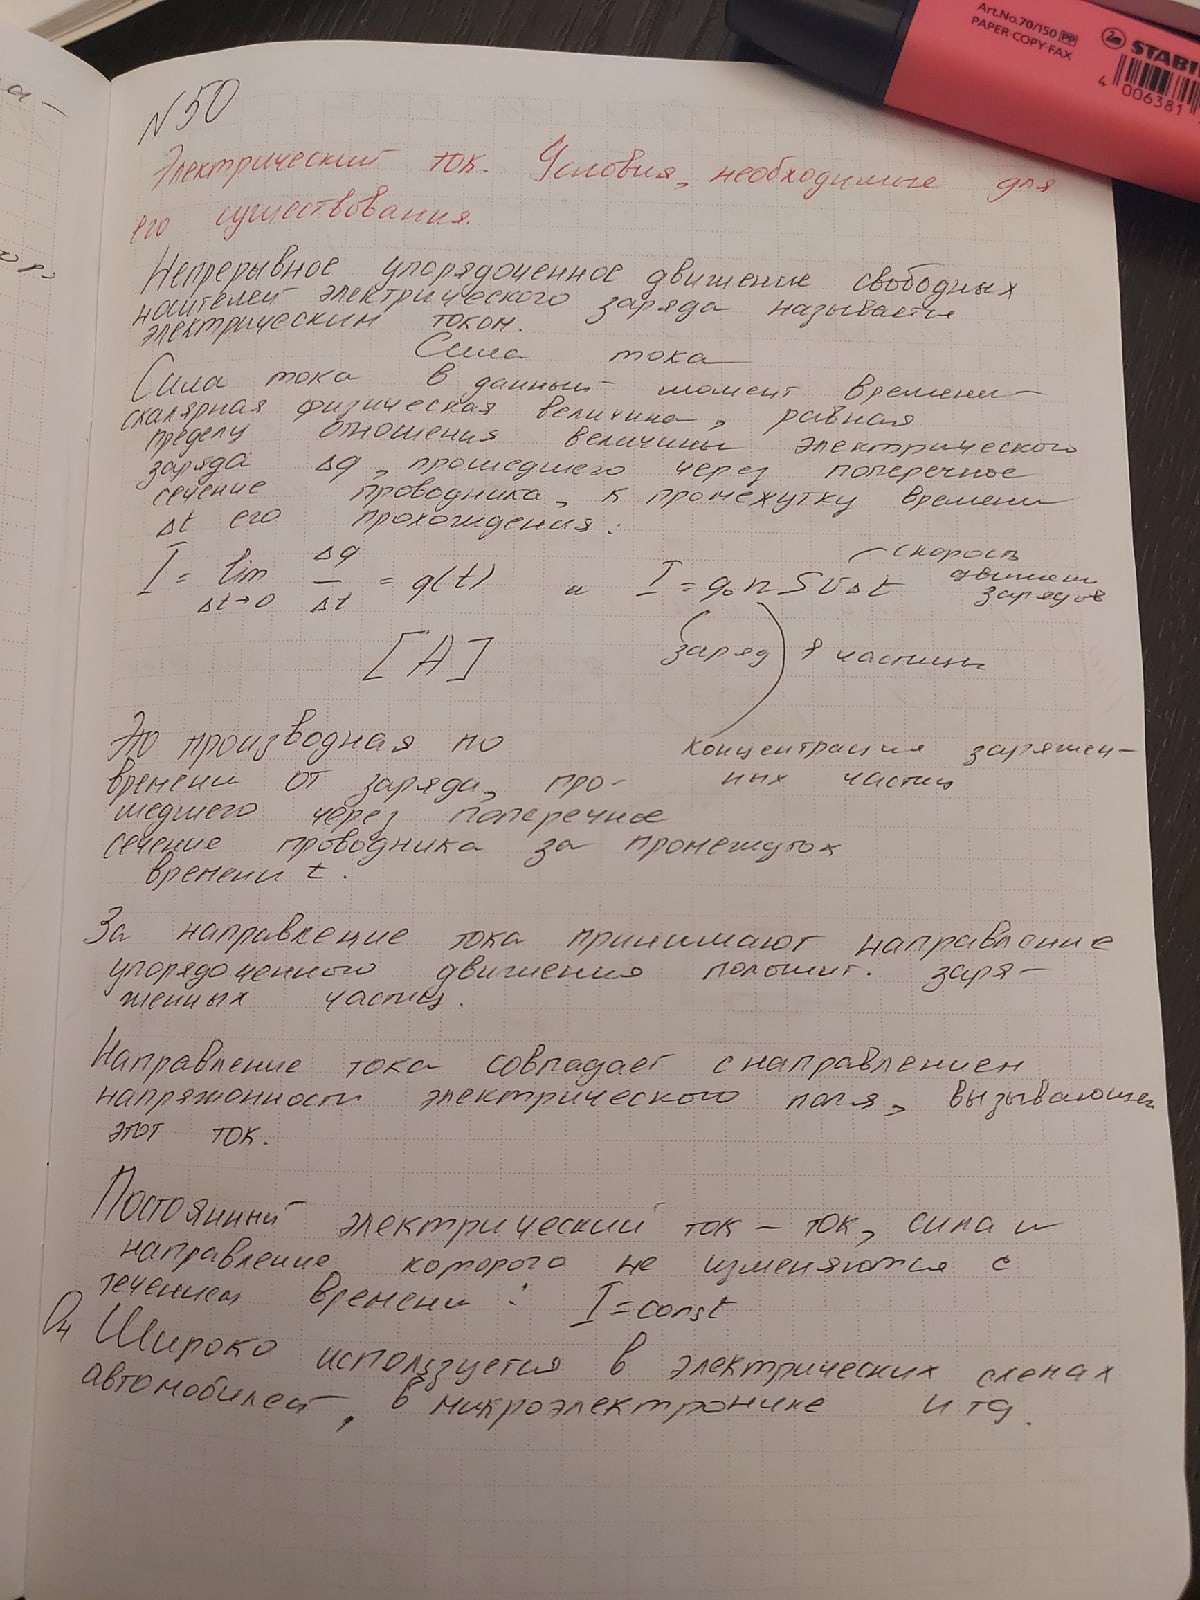 Art.No.70/150 PP
PAPER-COPY-FAX
STABI
4 006381
а-
N50
Электрический ток. Условия, необходимые для
его существования.
Непрерывное упорядоченное движение свободных
носителей электрического заряда называется
электрическим током.
Сила тока
Сила тока в данный момент времени-
скалярная физическая величина, равная
пределу отношения величины электрического
заряда Δq, прошедшего через поперечное
сечение проводника, к промежутку времени
Δt его прохождения:
I = lim Δq/Δt = q(t) и I = q₀nSυΔt
Δt→0
скорость
движения
зарядов
[A]
заряд 1 частицы
Это производная по
времени от заряда, про-
шедшего через поперечное
сечение проводника за промежуток
времени t.
концентрация заряжен-
ных частиц
За направление тока принимают направление
упорядоченного движения полошит. заря-
женных частиц.
Направление тока совпадает с направлением
напряжонности электрического поля, вызывающего
этот ток.
Постоянный электрический ток - ток, сила и
направление которого не изменяются с
течением времени: I=const
Широко используется в электрических схемах
автомобилей, в микроэлектронике и тд.